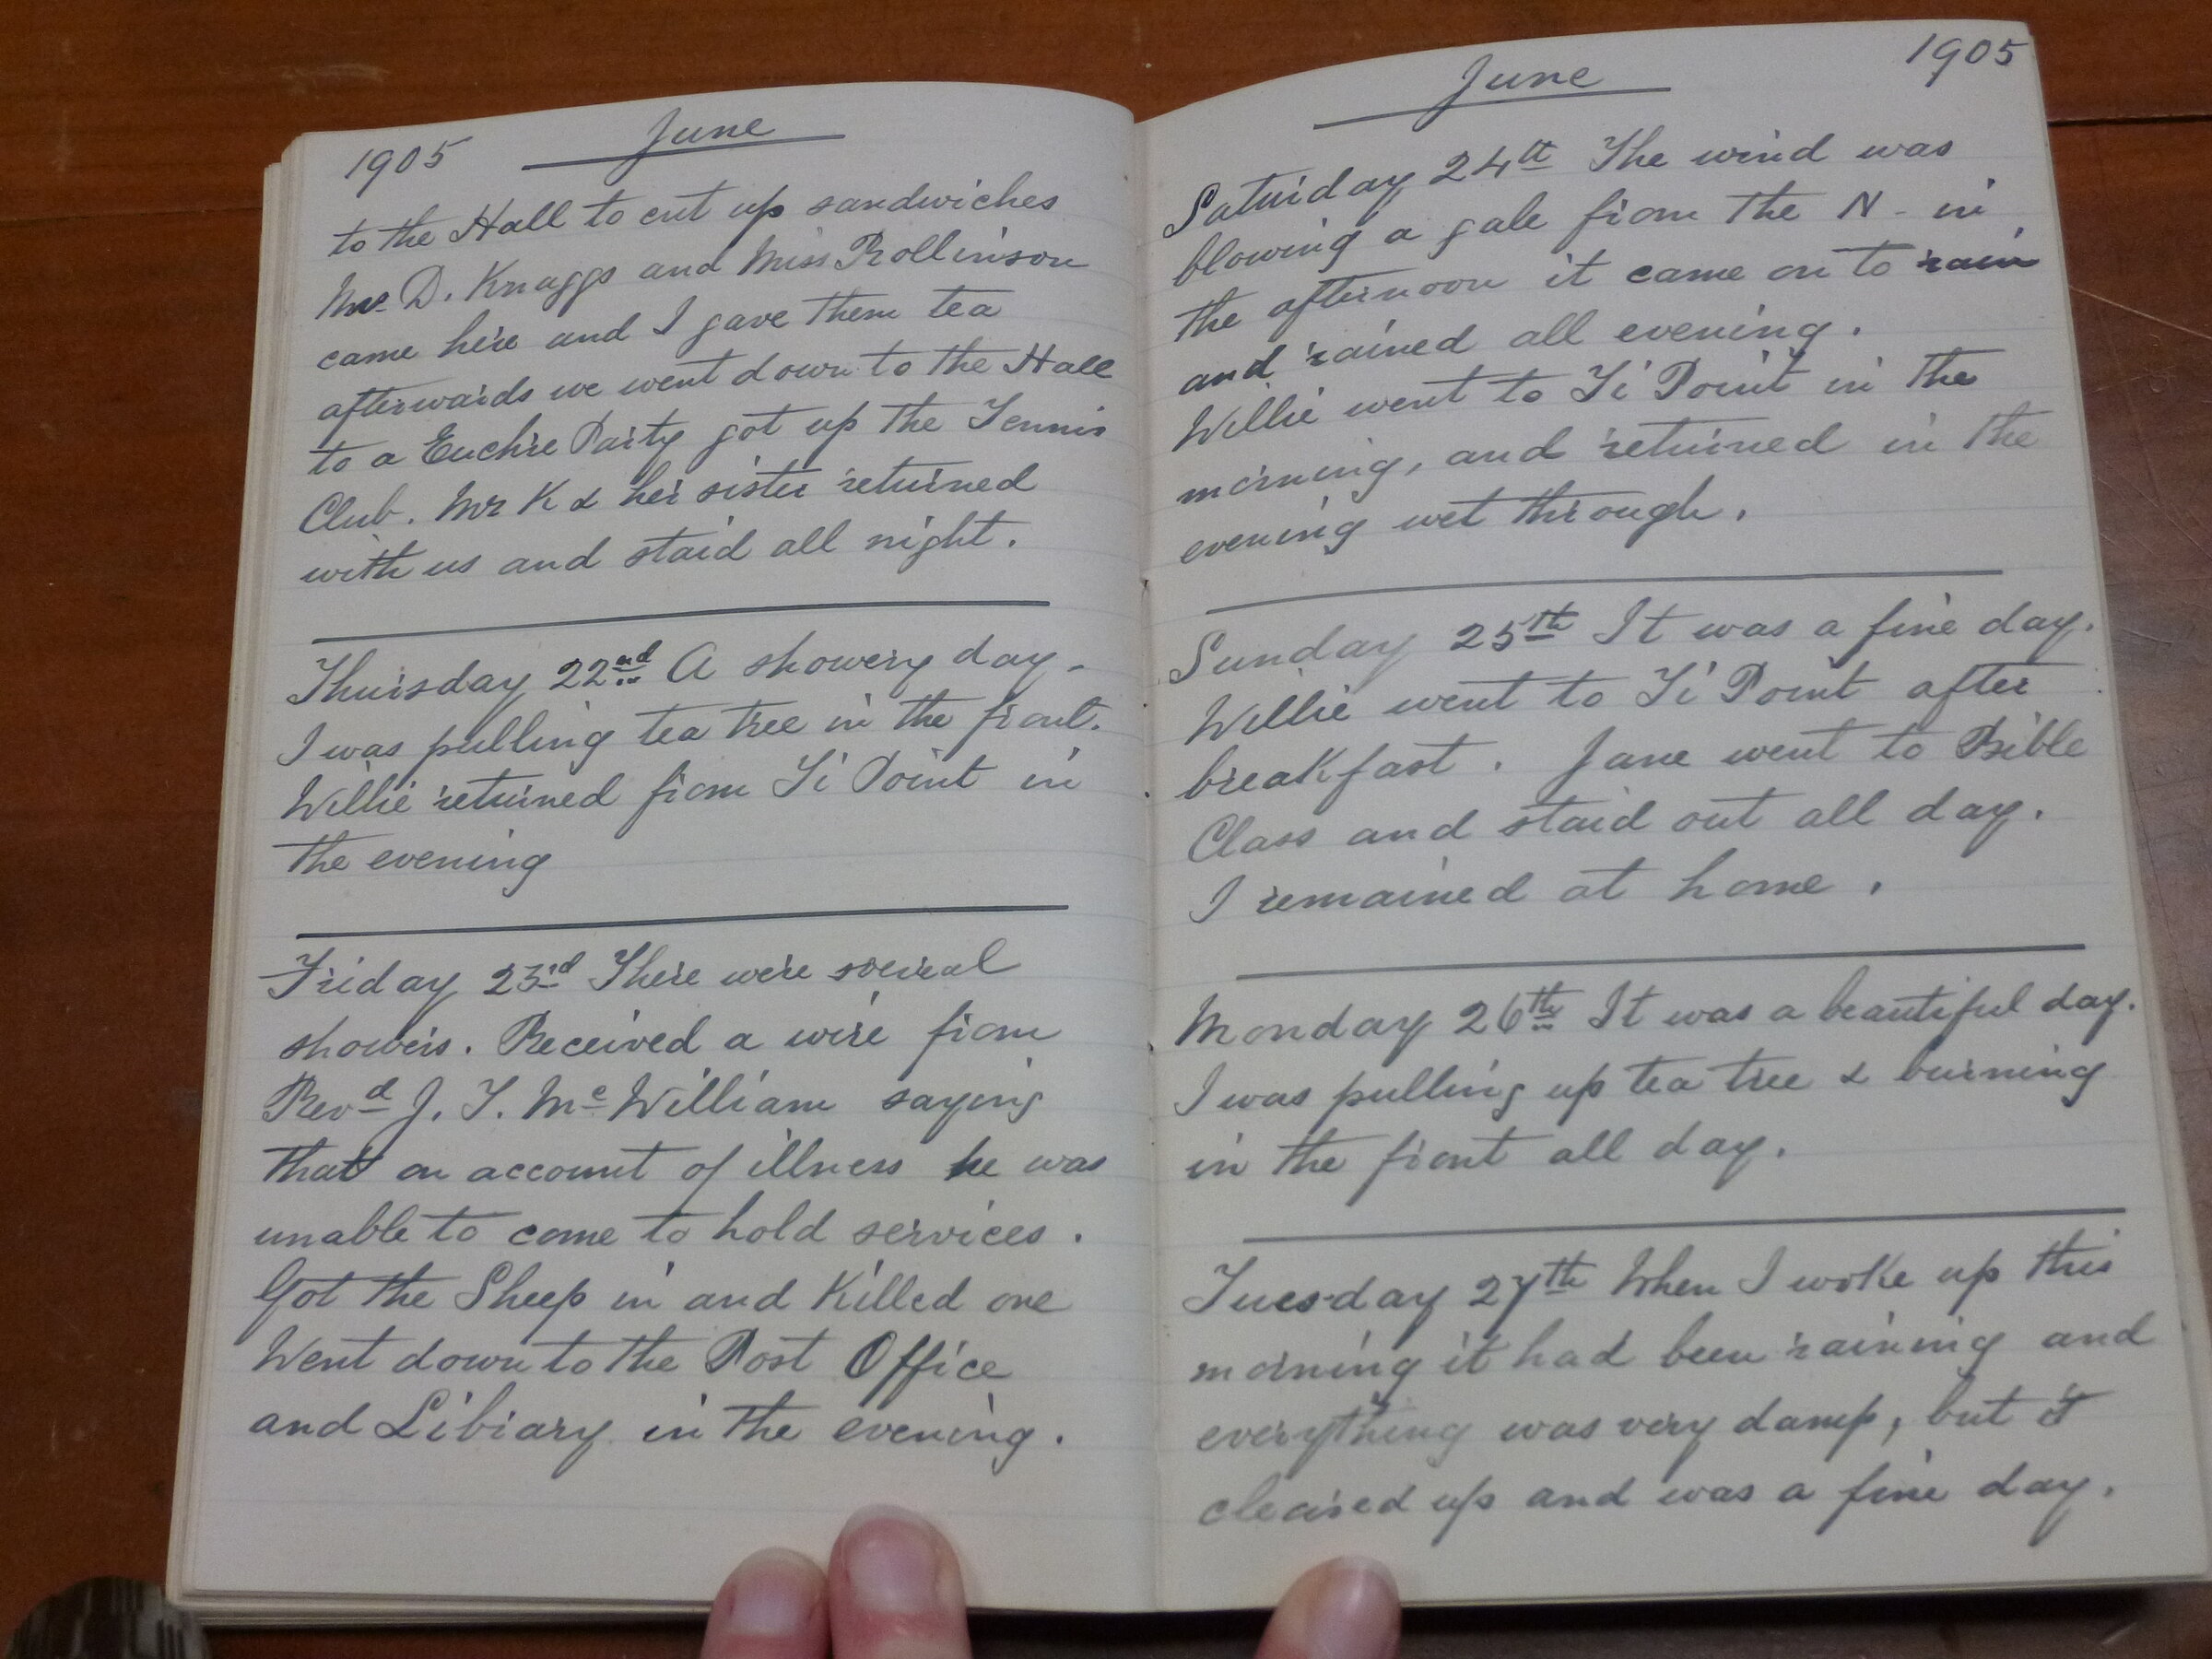 1905 June
to the Hall to cut up sandwiches
Mrs D. Knaggs and Miss Rollinson
came here and I gave them tea
afterwards we went down to the Hall
to a Euchre Party got up the Tennis
Club. Mrs K & her sister returned
with us and staid all night.
Thursday 22nd A showery day-
I was pulling tea tree in the front.
Willie returned from Ti Point in
the evening
Friday 23rd There were several
showers. Received a wire from
Revd J. T. McWilliam saying
that on account of illness he was
unable to come to hold services.
Got the Sheep in and Killed one
Went down to the Post Office
and Library in the evening.
June 1905
Saturday 24th The wind was
blowing a gale from the N - in
the afternoon it came on to rain
and rained all evening.
Willie went to Ti Point in the
morning, and returned in the
evening wet through.
Sunday 25th It was a fine day.
Willie went to Ti Point after
breakfast. Jane went to Bible
Class and staid out all day.
I remained at home.
Monday 26th It was a beautiful day.
I was pulling up tea tree & burning
in the front all day.
Tuesday 27th When I woke up this
morning it had been raining and
everything was very damp, but it
cleared up and was a fine day.